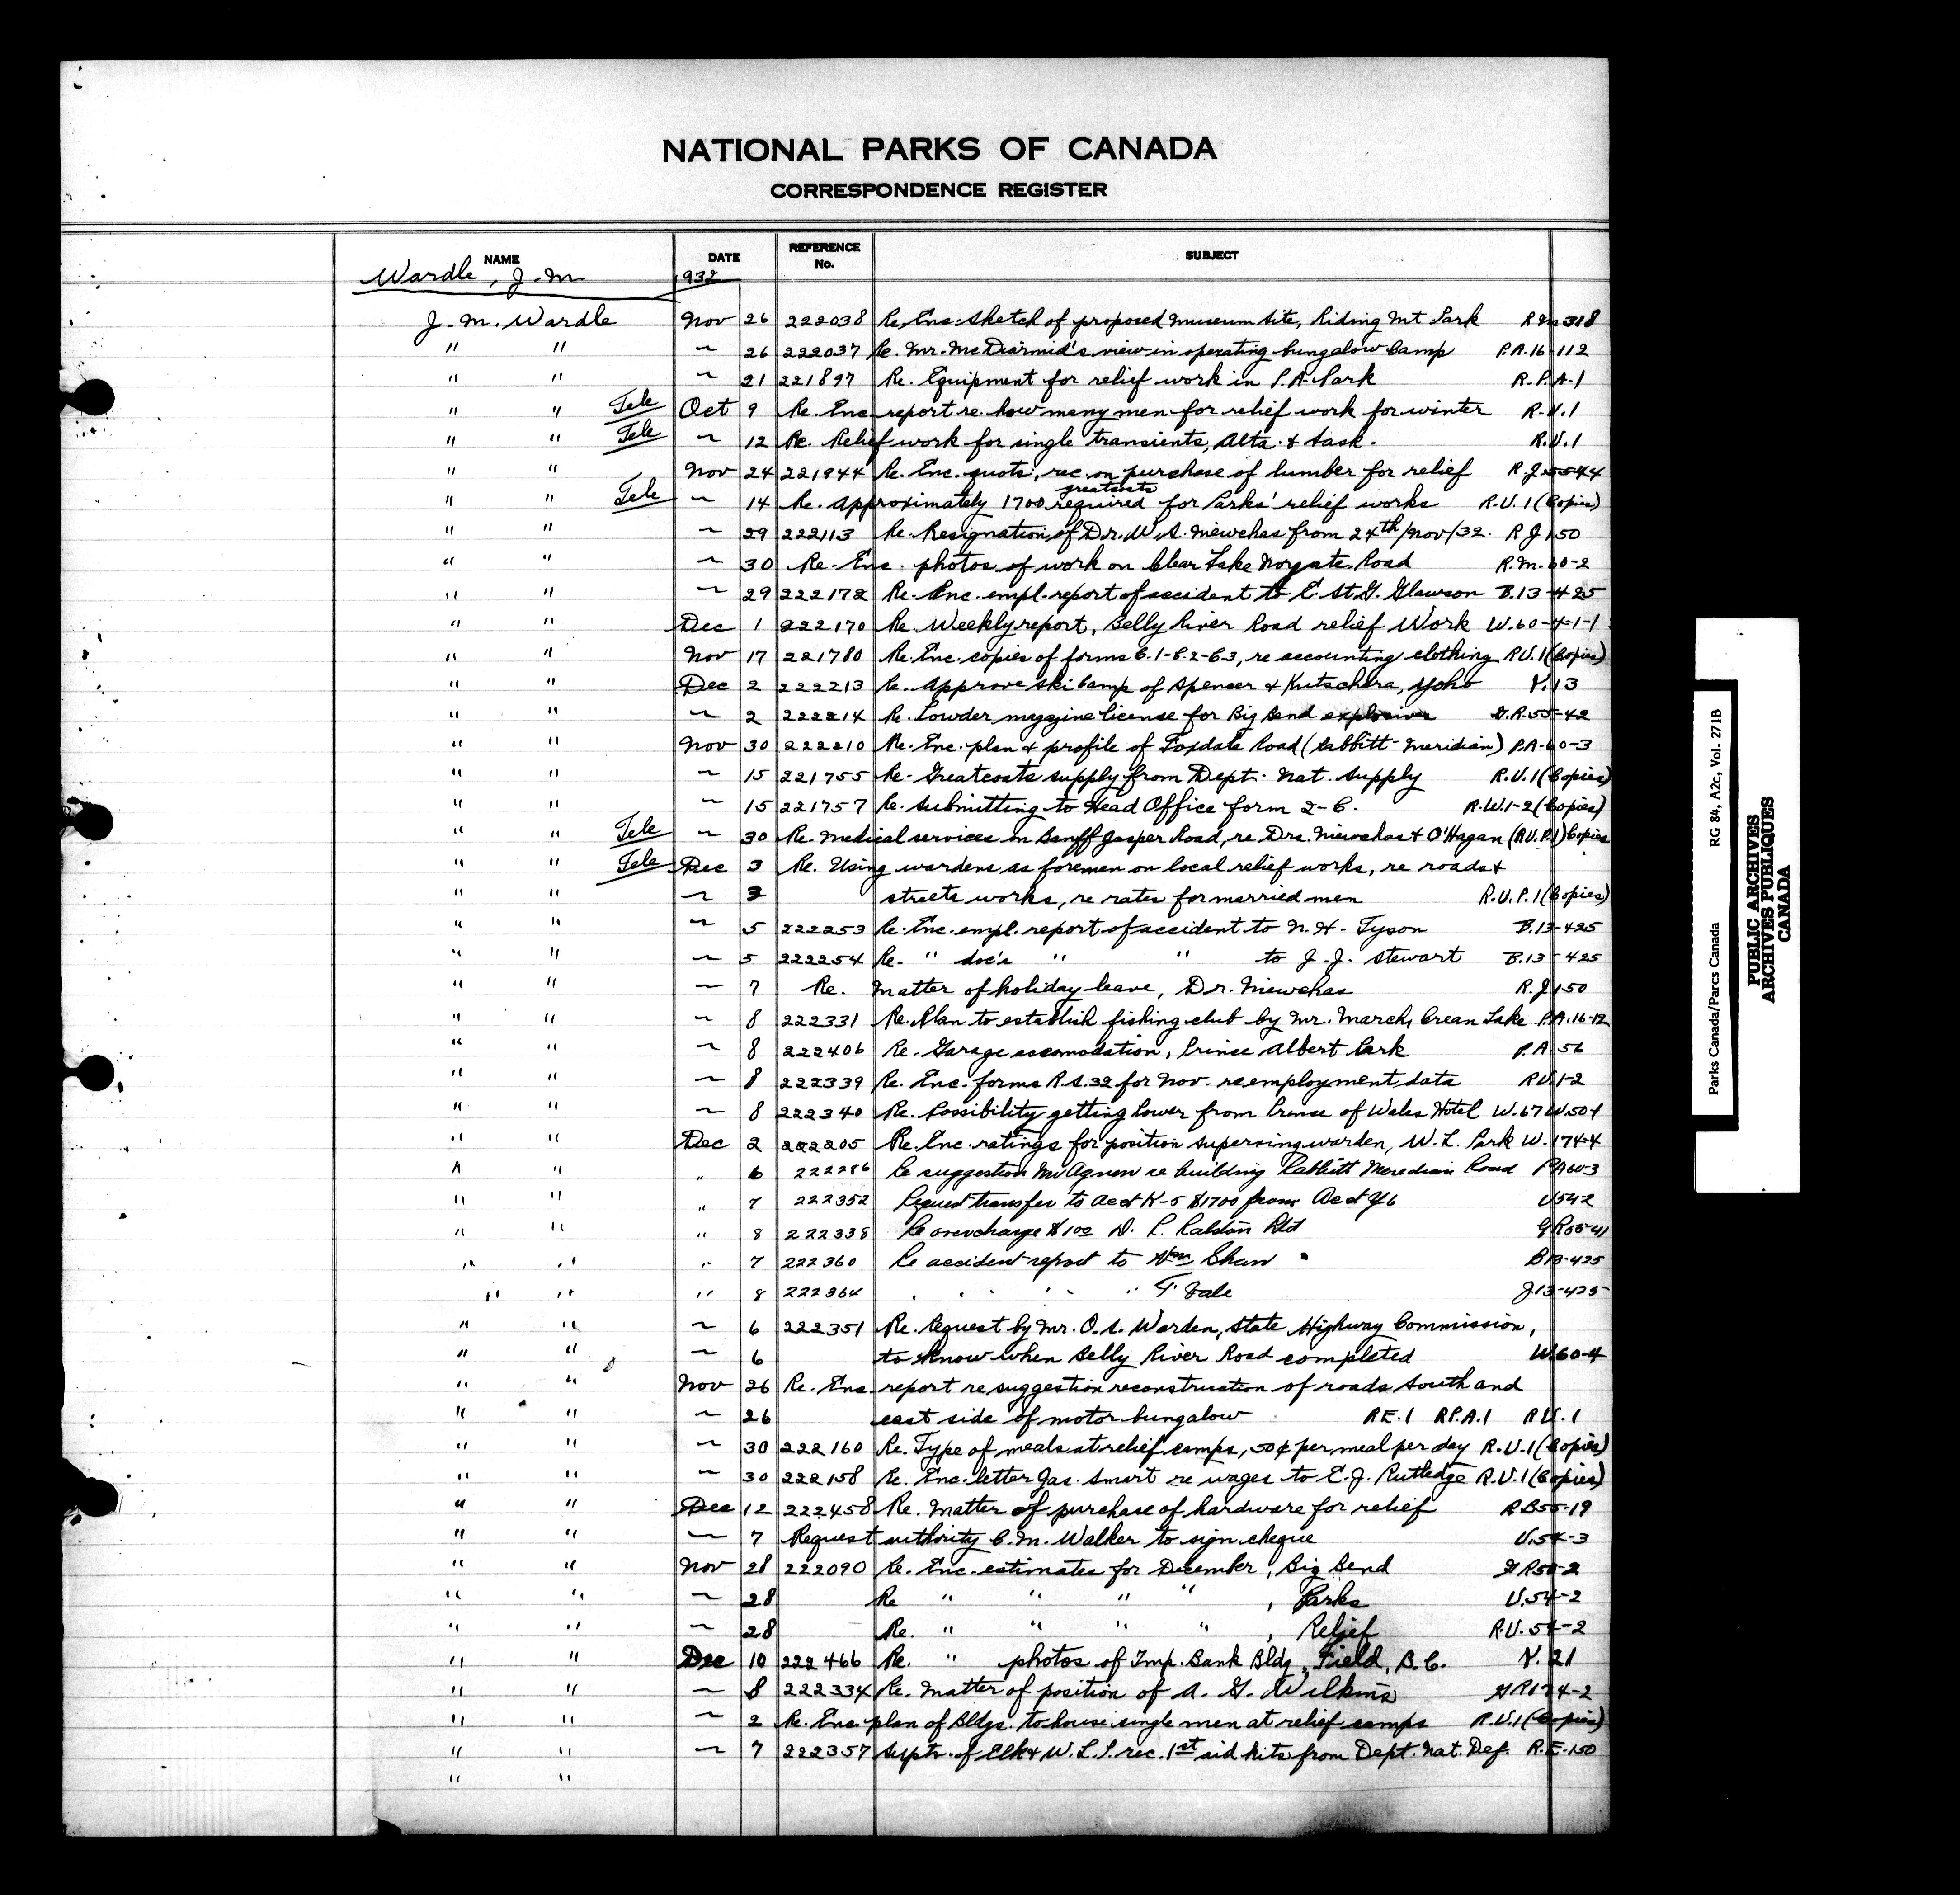 NATIONAL PARKS OF CANADA
CORRESPONDENCE REGISTER
NAME DATE REFERENCE No. SUBJECT
Wardle, J.M. 1932
J. M. Wardle Nov 26 222038 Re. Enc. sketch of proposed Museum site, Riding Mt Park R.M 318
" " ~ 26 222037 Re. Mr. McDiarmid's view in operating bungalow Camp P.A. 16-112
" " ~ 21 221897 Re. Equipment for relief work in P.A. Park R.P.A-1
" " Tele Oct 9 Re. Enc. report re. how many men for relief work for winter R.U.1
" " Tele ~ 12 Re. Relief work for single transients, Alta. & Sask. R.U.1
" " Nov 24 221944 Re. Enc. quots, rec. on purchase of lumber for relief R.J.55-44
" " Tele ~ 14 Re. Approximately 1700 greatcoats required for Parks' relief works R.U.1 (Copies)
" " ~ 29 222113 Re. Resignation of Dr. W.A. Niewchas from 24th/Nov/32. R J 150
" " ~ 30 Re. Enc. photos of work on Clear Lake Norgate Road R.M. 60-2
" " ~ 29 222172 Re. Enc. empl. report of accident to E. St. G. Glawson B.13-425
" " Dec 1 222170 Re. Weekly report, Belly River Road relief Work W.60-4-1-1
" " Nov 17 221780 Re. Enc. copies of forms C.1-C.2-C.3, re accounting clothing R.U.1 (Copies)
" " Dec 2 222213 Re. Approve ski Camp of Spencer & Kutschera, Yoho Y.13
" " ~ 2 222214 Re. Powder magazine license for Big Bend explosives G.R.55-42
" " Nov 30 222210 Re. Enc. plan & profile of Foxdale Road (Rabbitt-Meridian) P.A-60-3
" " ~ 15 221755 Re. Greatcoats supply from Dept. Nat. Supply R.U.1 (Copies)
" " ~ 15 221757 Re. Submitting to Head Office form 2-C. R.W.1-2 (Copies)
" " Tele ~ 30 Re. Medical services on Banff Jasper Road, re Drs. Niewchas & O'Hagan (R.U.P.1) Copies
" " Tele Dec 3 Re. Using wardens as foremen on local relief works, re roads &
" " ~ 3 streets works, re rates for married men R.U.P.1 (Copies)
" " ~ 5 222253 Re. Enc. empl. report of accident to N. H. Tyson B.13-425
" " ~ 5 222254 Re. " doc's " " to J. J. Stewart B.13-425
" " ~ 7 Re. Matter of holiday leave, Dr. Niewchas R.J 150
" " ~ 8 222331 Re. Plan to establish fishing club by Mr. March, Crean Lake P.A.16-12
" " ~ 8 222406 Re. Garage accomodation, Prince Albert Park P.A 56
" " ~ 8 222339 Re. Enc. forms R.S.32 for Nov. re employment data R.U.1-2
" " ~ 8 222340 Re. Possibility getting Power from Prince of Wales Hotel W.67 W.50-1
" " Dec 2 222205 Re. Enc. ratings for position supervising warden, W. L. Park W. 174-4
" " " 6 222286 Re suggestion McAgnew re building Rabbitt Meredian Road PA60-3
" " " 7 222352 Request transfer to Acct K-5 $1700 from Acct Y6 U54-2
" " " 8 222338 Re overcharge $1.00 D. P. Ralston Ltd GR55-41
" " " 7 222360 Re accident report to Wm Shaw B13-425
" " " 8 222364 " " " " " F Vale J13-425
" " ~ 6 222351 Re. Request by Mr. O. S. Warden, State Highway Commission,
" " ~ 6 to know when Belly River Road completed W.60-4
" " Nov 26 Re. Enc. report re suggestion reconstruction of roads South and
" " ~ 26 east side of motor bungalow R E.1 R P.A.1 R U.1
" " ~ 30 222160 Re. Type of meals at relief camps, 50¢ per meal per day R.U.1 (Copies)
" " ~ 30 222158 Re. Enc. letter Jas. Smart re wages to E. J. Rutledge R.U.1 (Copies)
" " Dec 12 222458 Re. Matter of purchase of hardware for relief R.B55-19
" " ~ 7 Request authority C. M. Walker to sign cheque U.54-3
" " Nov 28 222090 Re. Enc. estimates for December, Big Bend G R54-2
" " ~ 28 Re " " " " , Parks U.54-2
" " ~ 28 Re. " " " " , Relief R.U.54-2
" " Dec 10 222466 Re. " photos of Imp. Bank Bldg, Field, B.C. Y.21
" " ~ 8 222334 Re. Matter of position of A. G. Wilkins G R174-2
" " ~ 2 Re. Enc. plan of Bldgs. to house single men at relief camps R.U.1 (Copies)
" " ~ 7 222357 Supts. of Elk & W.L.P. rec. 1st aid kits from Dept. Nat. Def. R.E-150
" "
Parks Canada/Parcs Canada RG 84, A2c, Vol. 271B
PUBLIC ARCHIVES
ARCHIVES PUBLIQUES
CANADA